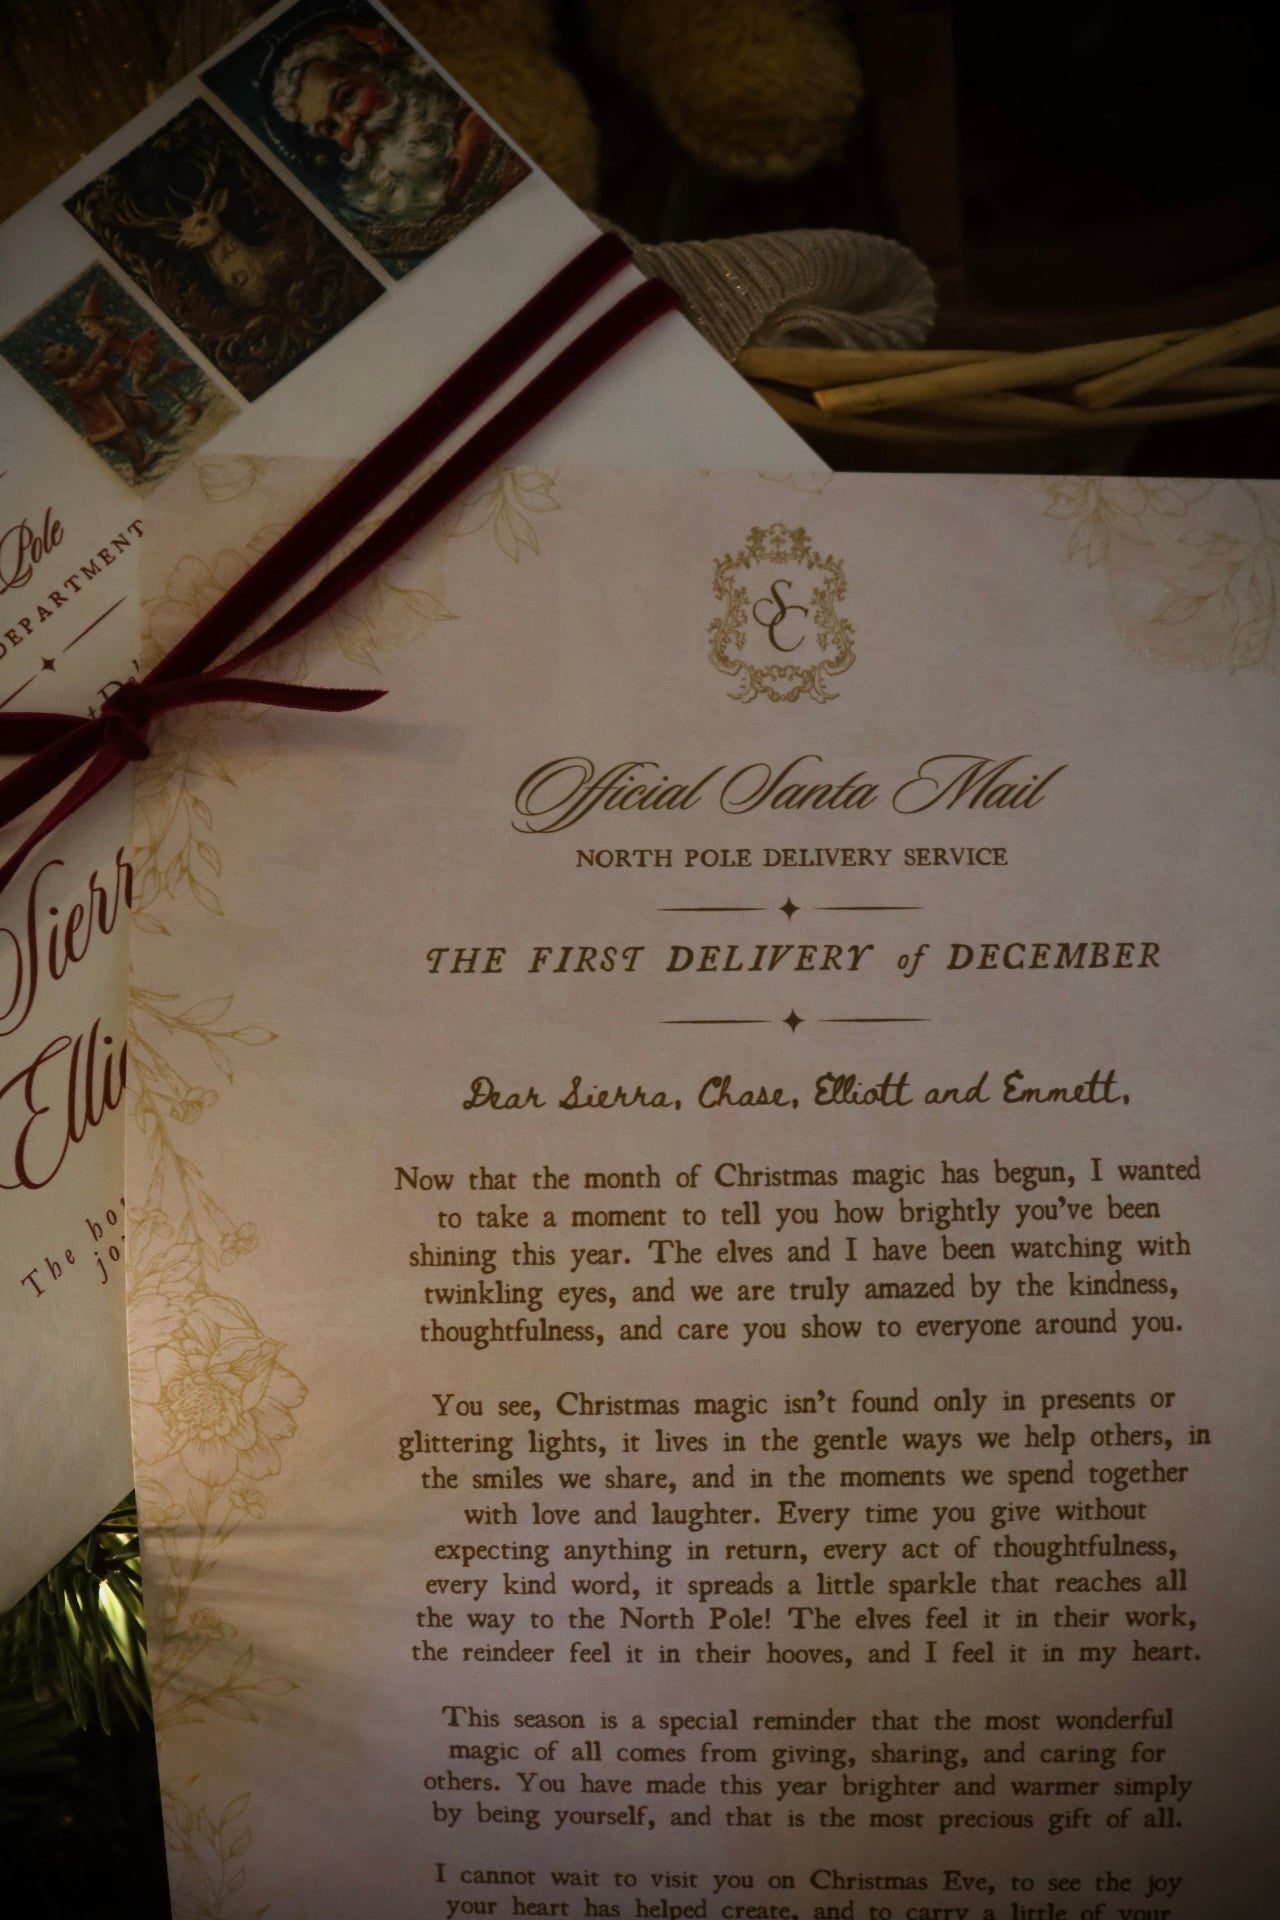 Pole
DEPARTMENT
Sierr
Elli
The bo
jo
SC
Official Santa Mail
NORTH POLE DELIVERY SERVICE
THE FIRST DELIVERY of DECEMBER
Dear Sierra, Chase, Elliott and Emmett,
Now that the month of Christmas magic has begun, I wanted
to take a moment to tell you how brightly you've been
shining this year. The elves and I have been watching with
twinkling eyes, and we are truly amazed by the kindness,
thoughtfulness, and care you show to everyone around you.
You see, Christmas magic isn't found only in presents or
glittering lights, it lives in the gentle ways we help others, in
the smiles we share, and in the moments we spend together
with love and laughter. Every time you give without
expecting anything in return, every act of thoughtfulness,
every kind word, it spreads a little sparkle that reaches all
the way to the North Pole! The elves feel it in their work,
the reindeer feel it in their hooves, and I feel it in my heart.
This season is a special reminder that the most wonderful
magic of all comes from giving, sharing, and caring for
others. You have made this year brighter and warmer simply
by being yourself, and that is the most precious gift of all.
I cannot wait to visit you on Christmas Eve, to see the joy
your heart has helped create, and to carry a little of your